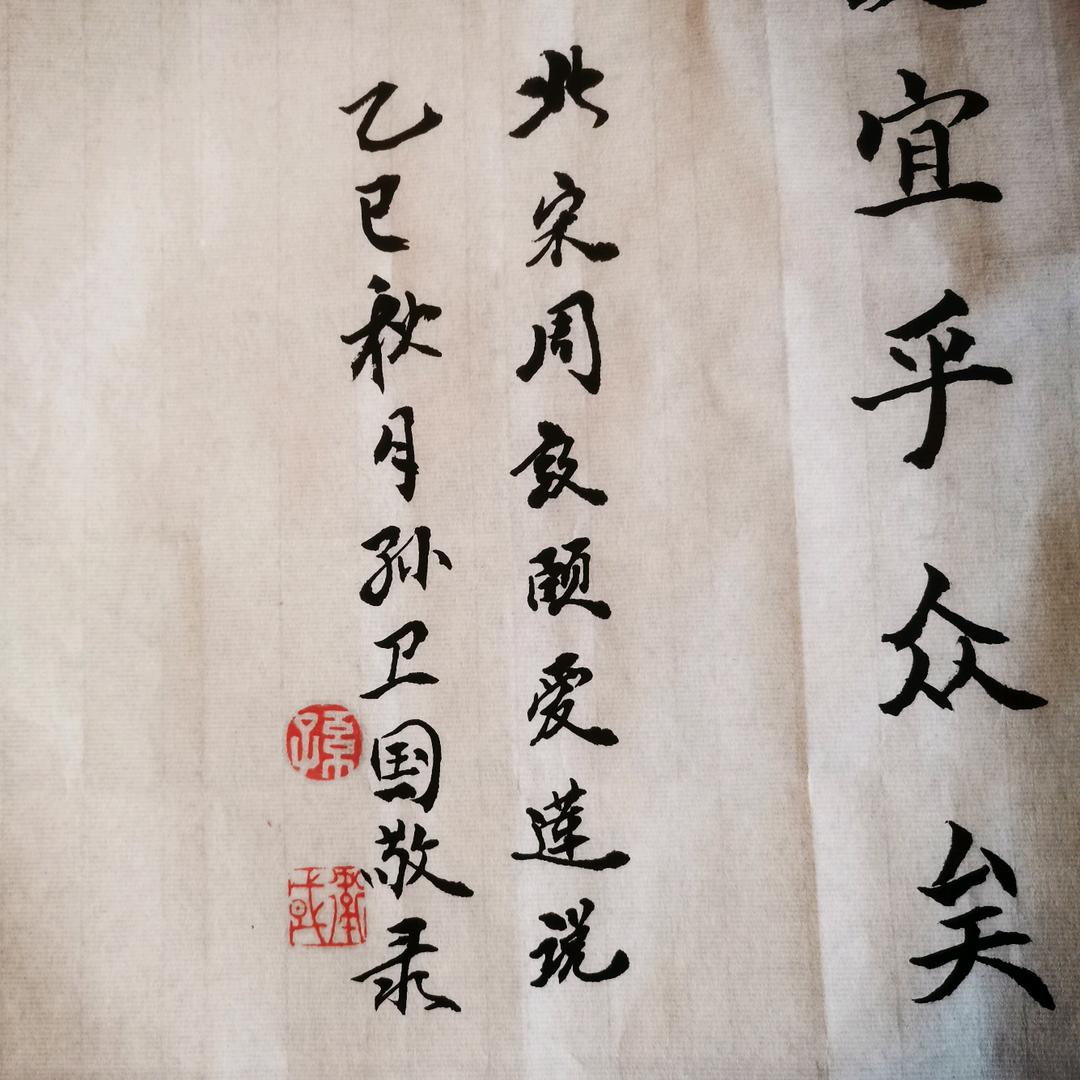 宜乎众矣
北宋周敦颐爱莲说
乙巳秋月孙卫国敬录